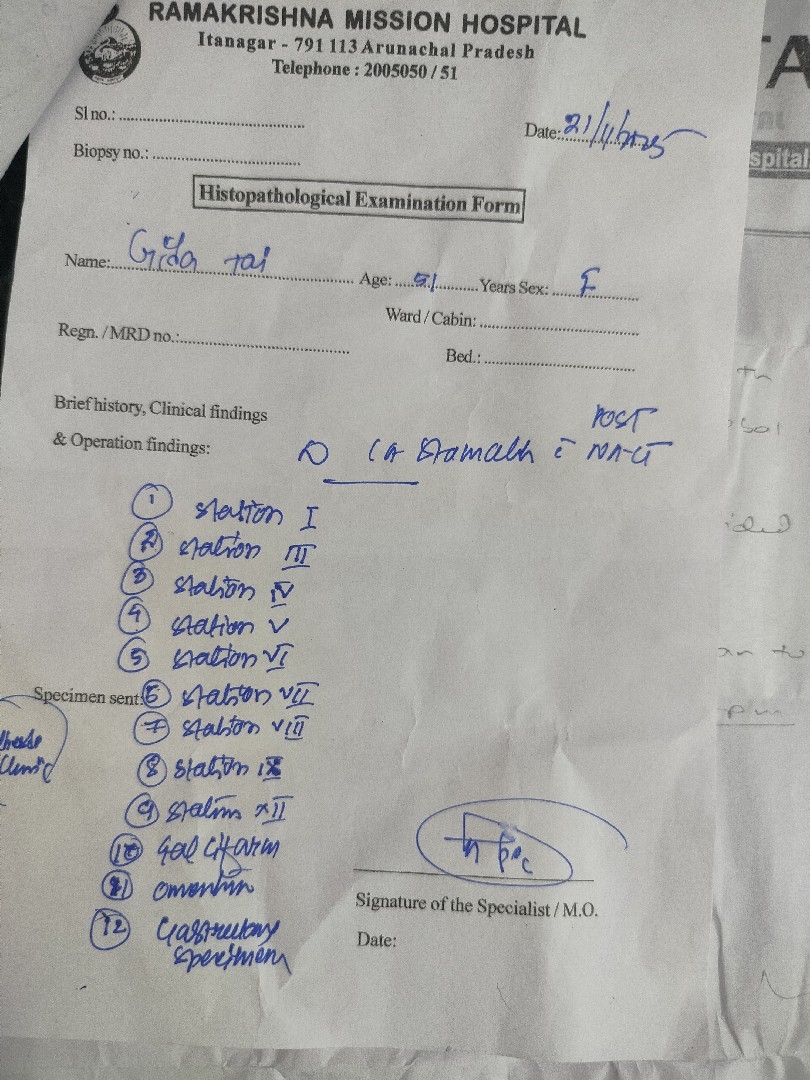 RAMAKRISHNA MISSION HOSPITAL
Itanagar - 791 113 Arunachal Pradesh
Telephone : 2005050 / 51
Sl no.:
Date: 21/4/2025
Biopsy no.:
Histopathological Examination Form
Name: Tai Age: 51 Years Sex: F
Ward / Cabin:
Regn. / MRD no.:
Bed.:
Brief history, Clinical findings
& Operation findings:
POST
Ca Stomach c NACT
1 Station I
2 Station III
3 Station IV
4 Station V
5 Station VI
Specimen sent: 6 Station VII
7 Station VIII
8 Station IX
9 Station XII
10
11 omentum
12 Gastrectomy
specimen
Signature of the Specialist / M.O.
Date:
TA
spital